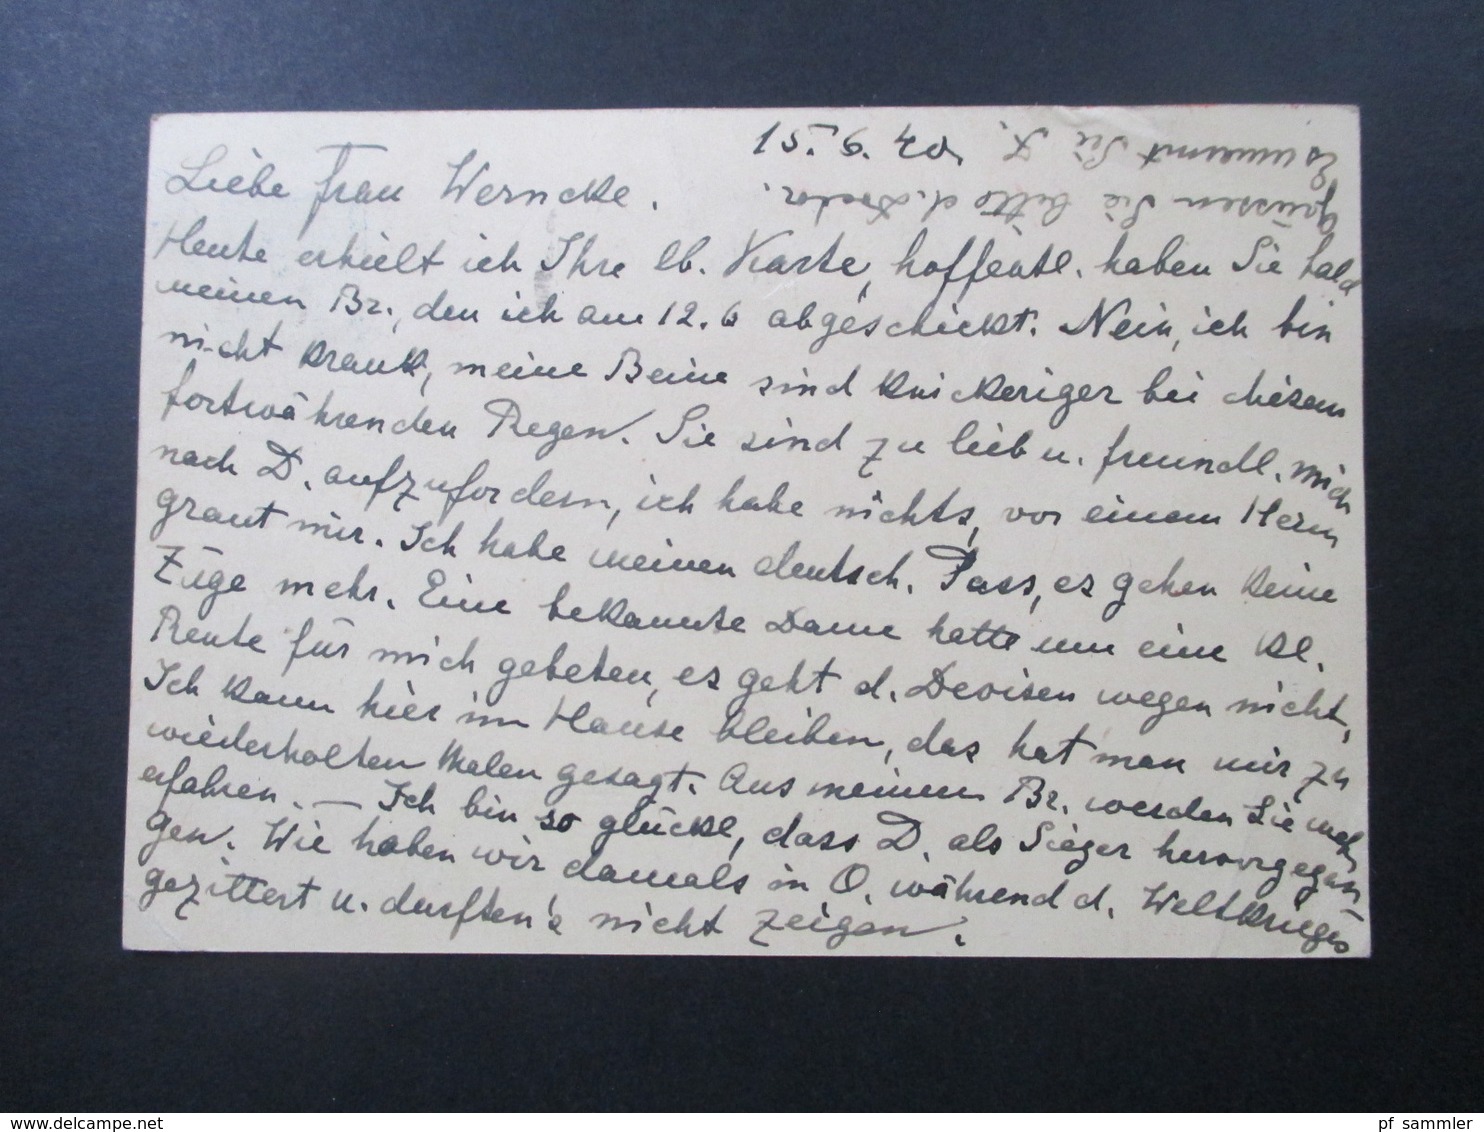 15.6.40.
Liebe Frau Werncke.
Heute erhielt ich Ihre lb. Karte, hoffentl. haben Sie bald
meinen Br., den ich am 12.6 abgeschickt. Nein, ich bin
nicht krank, meine Beine sind knickeriger bei diesem
fortwährenden Regen. Sie sind zu lieb u. freundl. mich
nach D. aufzufordern, ich habe nichts, vor einem Herrn
graut mir. Ich habe meinen deutsch. Pass, es gehen keine
Züge mehr. Eine bekannte Dame hatte um eine kl.
Rente für mich gebeten, es geht d. Devisen wegen nicht,
Ich kann hier im Hause bleiben, das hat man mir zu
wiederholten Malen gesagt. Aus meinem Br. werden Sie mehr
erfahren. — Ich bin so glückl, dass D. als Sieger hervorgegan
gen. Wie haben wir damals in O. während d. Weltkrieges
gezittert u. durften's nicht zeigen.
Grüssen Sie bitte d. Doctor.
Es umarmt Sie
pf_sammler